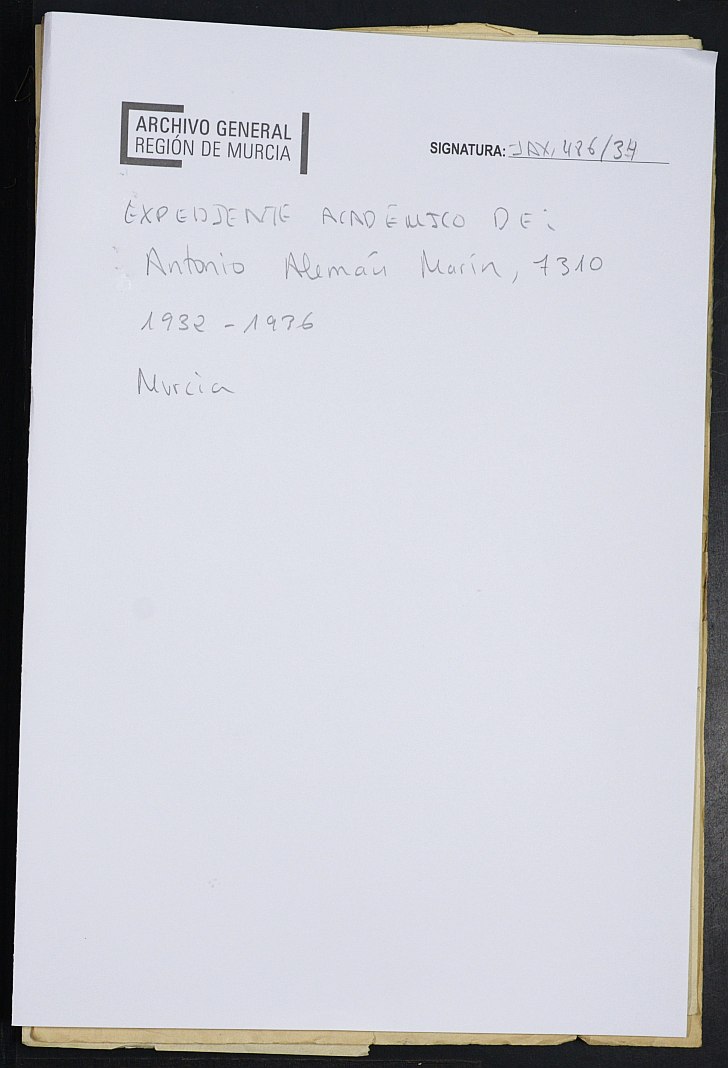 ARCHIVO GENERAL
REGIÓN DE MURCIA
SIGNATURA: JAX, 486/34
EXPEDIENTE ACADÉMICO DE:
Antonio Alemán Marín, 7310
1932 - 1936
Murcia